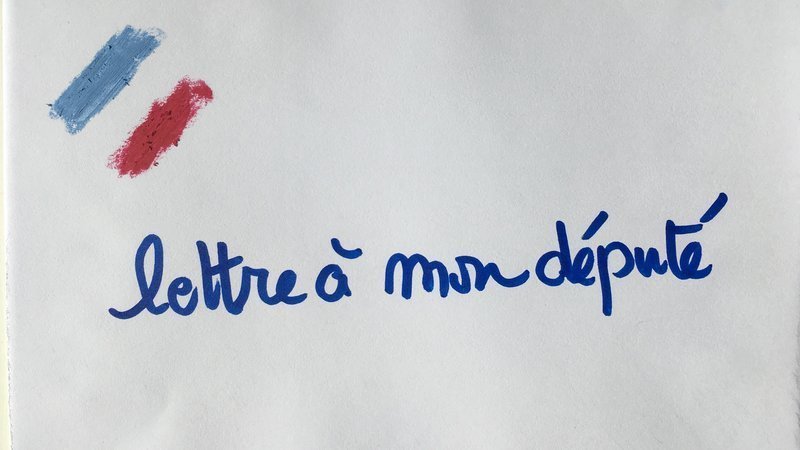 lettre à mon député